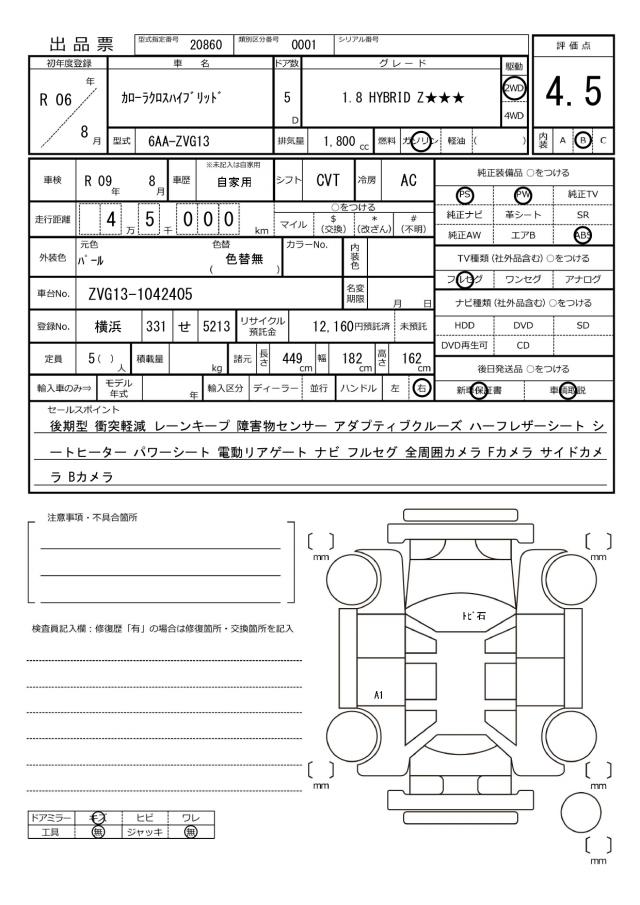 出品票 型式指定番号 20860 類別区分番号 0001 シリアル番号
評価点
4.5
内装 A B C
初年度登録 車名 ドア数 グレード 駆動
R 06 年 8 月
カローラクロスハイブリッド 5 D 1.8 HYBRID Z★★★ 2WD
4WD
型式 6AA-ZVG13 排気量 1,800 cc 燃料 ガソリン 軽油 ( )
車検 R 09 年 8 月 車歴 ※未記入は自家用 自家用 シフト CVT 冷房 AC
走行距離 4 万 5 千 0 0 0 km
○をつける
マイル $ (交換) * (改ざん) # (不明)
外装色 元色 パール 色替 ( 色替無 ) カラーNo. 内装色
車台No. ZVG13-1042405 名変期限 月 日
登録No. 横浜 331 せ 5213 リサイクル預託金 12,160円預託済 未預託
定員 5 ( ) 人 積載量 kg 諸元 長さ 449 cm 幅 182 cm 高さ 162 cm
輸入車のみ⇒ モデル年式 年 輸入区分 ディーラー 並行 ハンドル 左 右
純正装備品 ○をつける
PS PW 純正TV
純正ナビ 革シート SR
純正AW エアB ABS
TV種類 (社外品含む) ○をつける
フルセグ ワンセグ アナログ
ナビ種類 (社外品含む) ○をつける
HDD DVD SD
DVD再生可 CD
後日発送品 ○をつける
新車保証書 車輌取説
セールスポイント
後期型 衝突軽減 レーンキープ 障害物センサー アダプティブクルーズ ハーフレザーシート シ
ートヒーター パワーシート 電動リアゲート ナビ フルセグ 全周囲カメラ Fカメラ サイドカメ
ラ Bカメラ
注意事項・不具合箇所
検査員記入欄：修復歴「有」の場合は修復箇所・交換箇所を記入
mm
mm
トビ石
A1
mm
mm
mm
ドアミラー キズ ヒビ ワレ
工具 無 ジャッキ 無